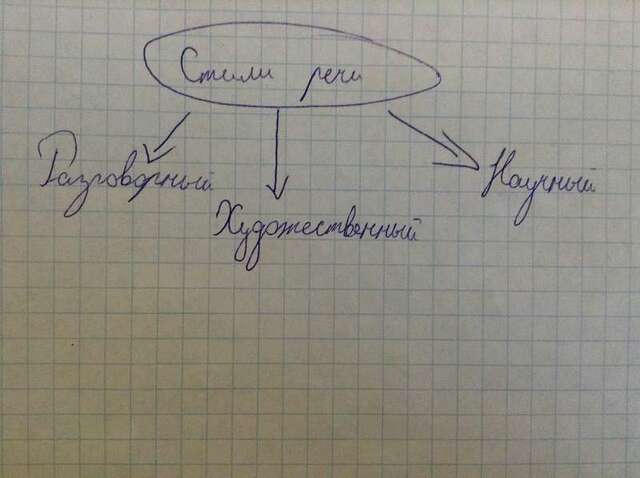 Стили речи
Разговорный
Художественный
Научный